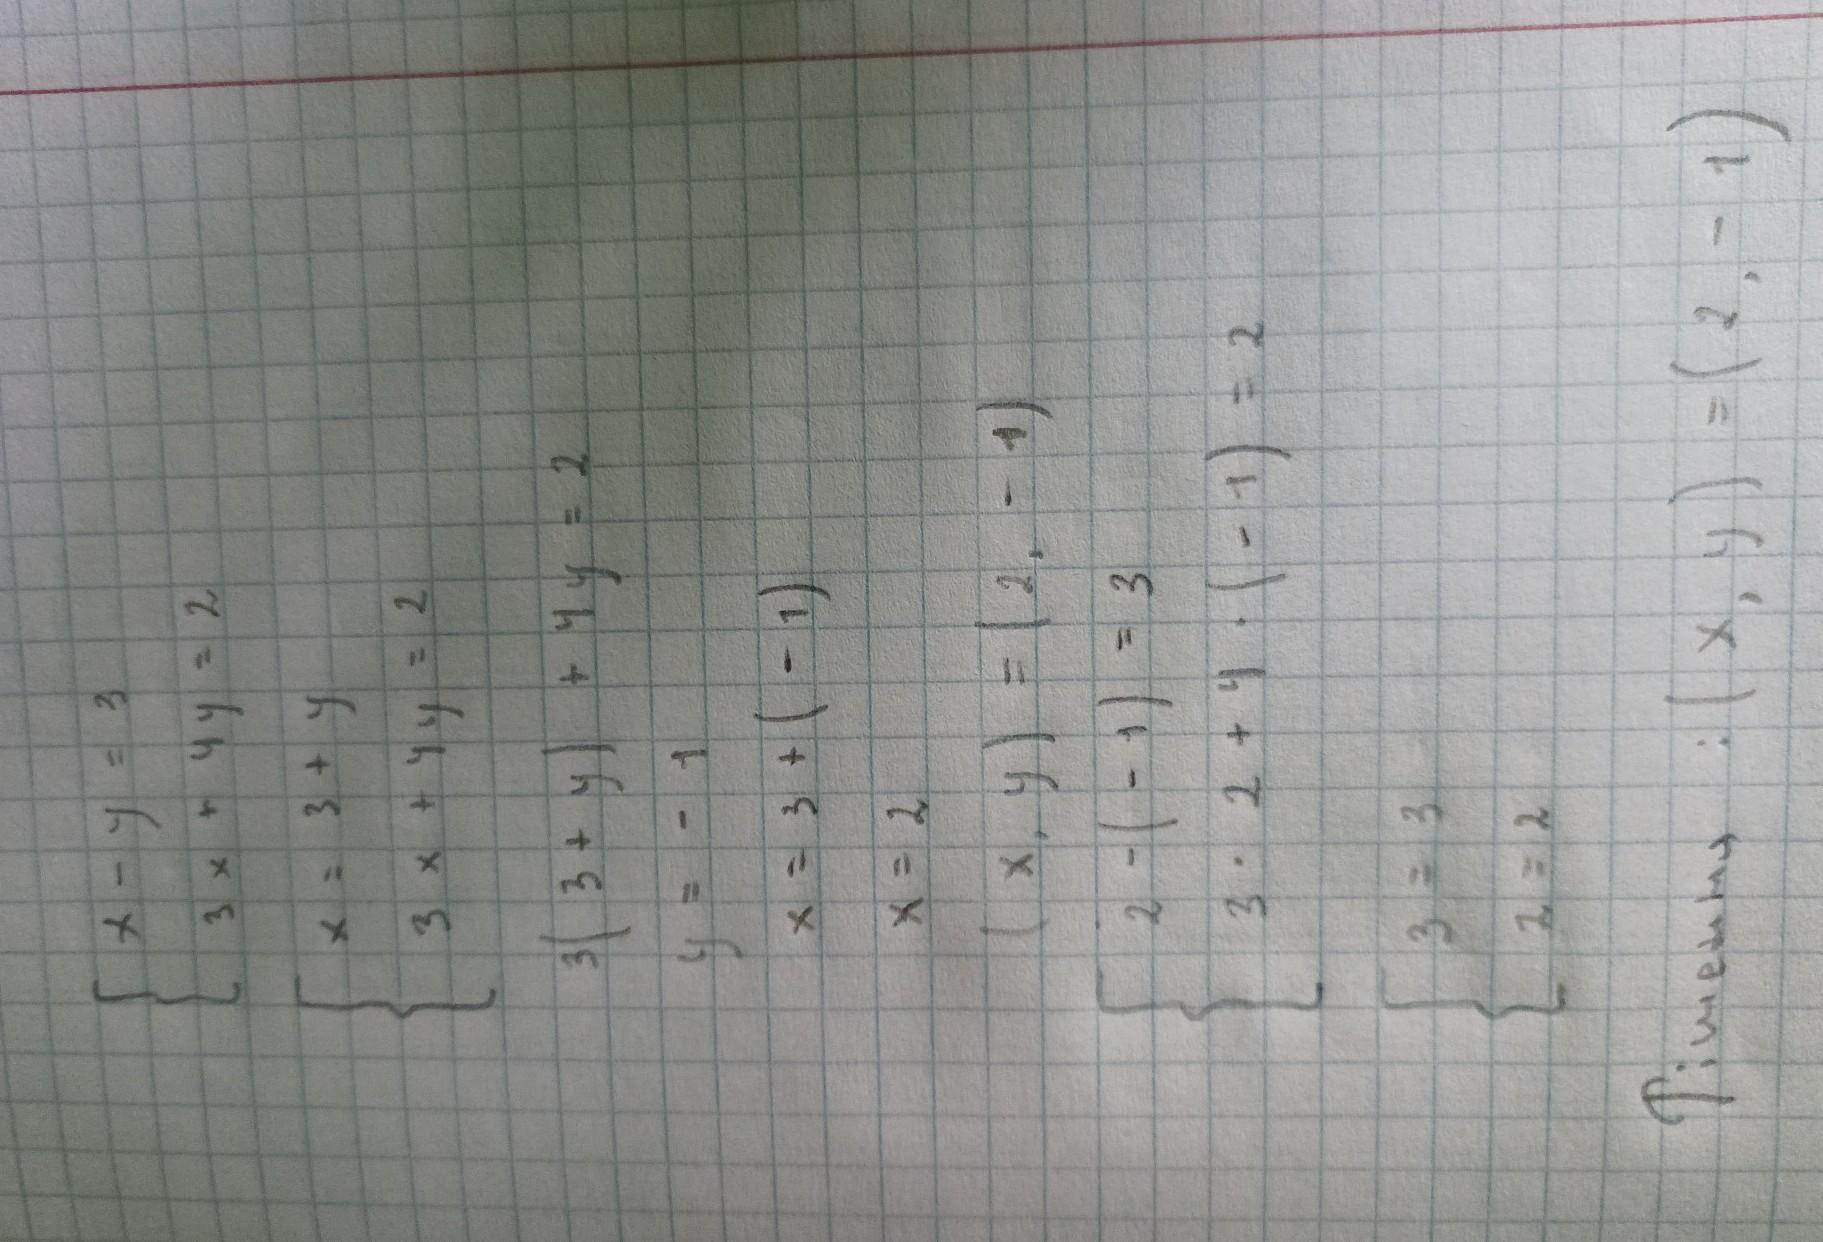 { x - y = 3
3x + 4y = 2
{ x = 3 + y
3x + 4y = 2
3(3 + y) + 4y = 2
y = -1
x = 3 + (-1)
x = 2
(x, y) = (2, -1)
{ 2 - (-1) = 3
3 · 2 + 4 · (-1) = 2
{ 3 = 3
2 = 2
: (x, y) = (2, -1)